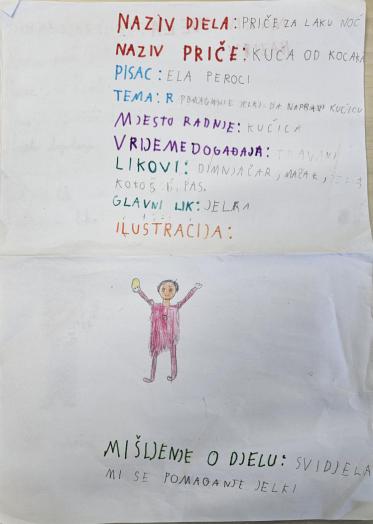 NAZIV DJELA: PRIČE ZA LAKU NOĆ
NAZIV PRIČE: KUĆA OD KOCAKA
PISAC: ELA PEROCI
TEMA: POMAGANJE JELKI DA NAPRAVI KUĆICU
MJESTO RADNJE: KUĆICA
VRIJEME DOGAĐAJA:
LIKOVI: DIMNJAČAR, MAČAK,
PAS.
GLAVNI LIK: JELKA
ILUSTRACIJA:
MIŠLJENJE O DJELU: SVIDJELA
MI SE POMAGANJE JELKI